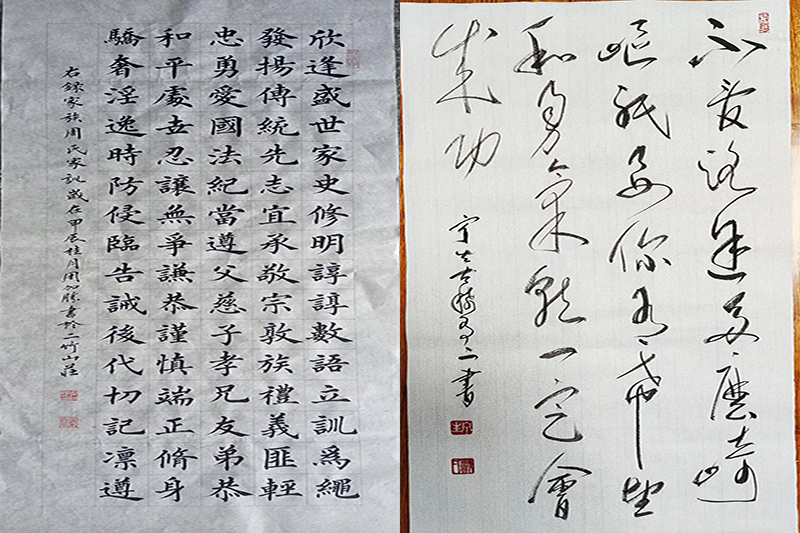 欣逢盛世家史修明諄諄數語立訓爲繩
發揚傳統先志宜承敬宗敦族禮義匪輕
忠勇愛國法紀當遵父慈子孝兄友弟恭
和平處世忍讓無爭謙恭謹慎端正脩身
驕奢淫逸時防侵臨告誡後代切記凜遵
右錄家族周氏家訓歲在甲辰桂月周加勝書於二竹山莊
不管路途多麼崎
嶇祇要你有希望
和勇氣就一定會
成功
書